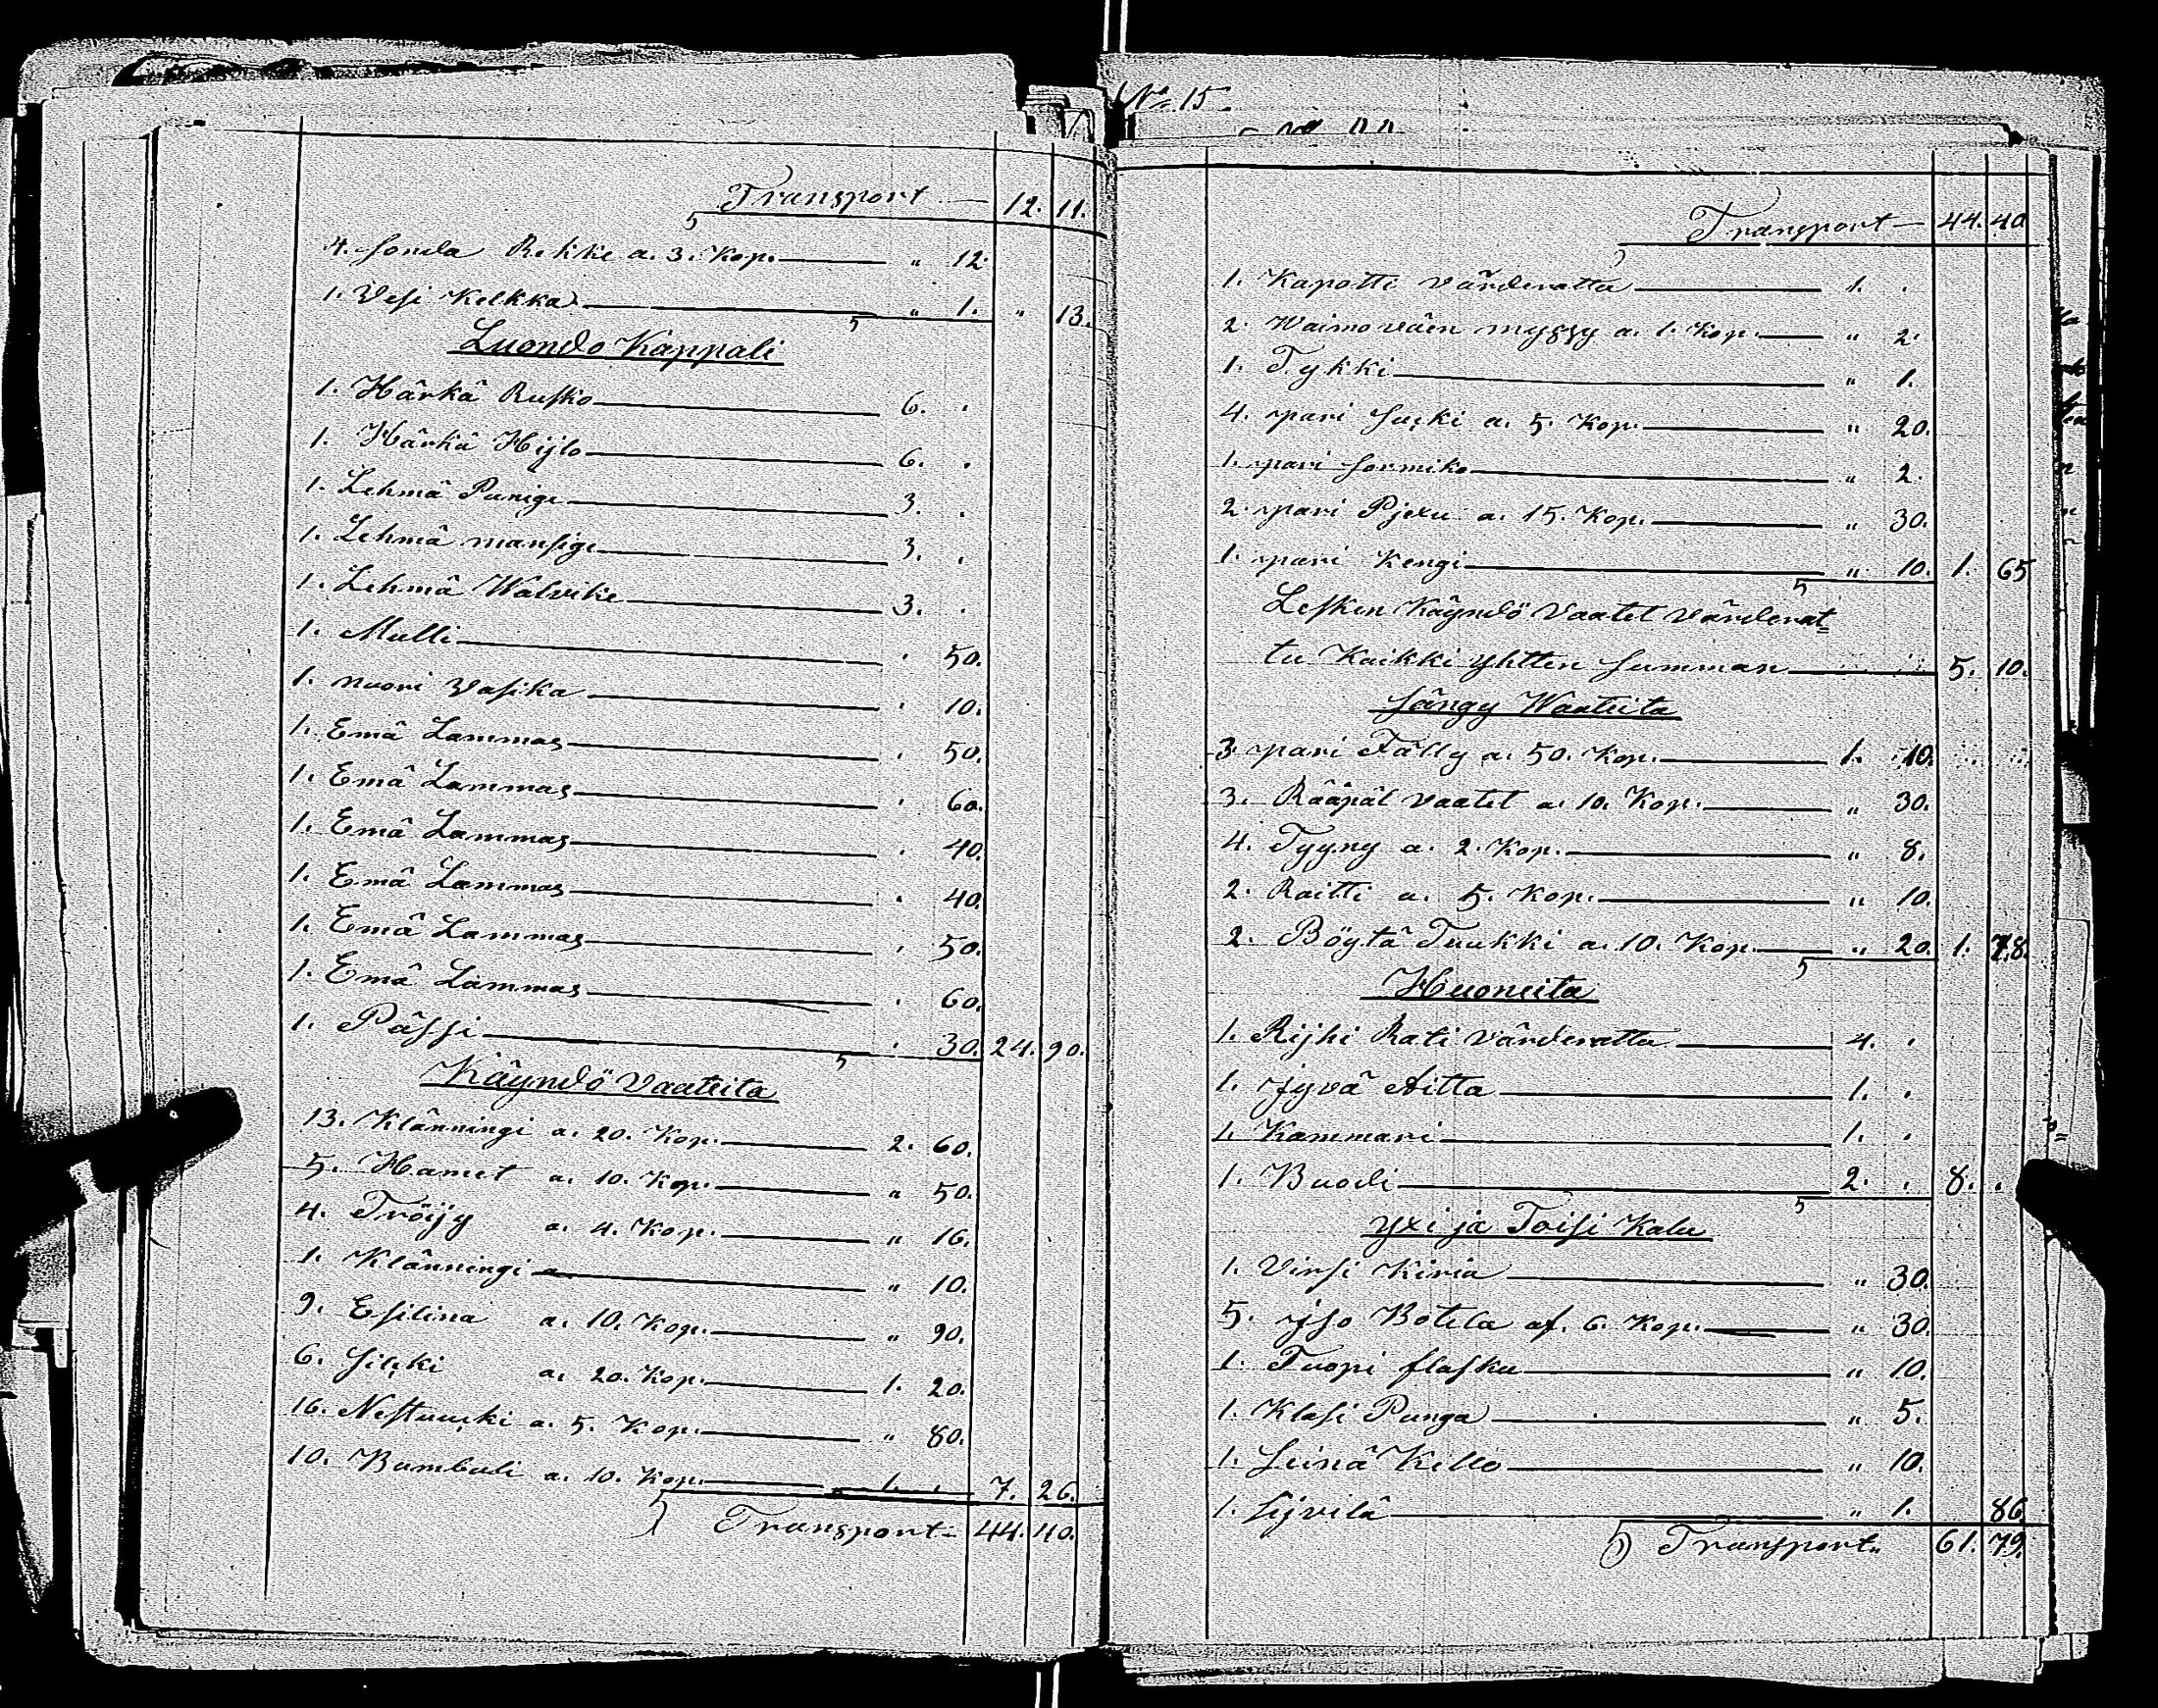 Transport — 12. 11.
4. Sonda Rekke a. 3. Kop. — " 12.
1. Vesi Kelkka — " 1. " 13.
Luondo Kappali
1. Härkä Rusko — 6. .
1. Härkä Hijlo — 6. .
1. Lehmä Punige — 3. .
1. Lehmä mansige — 3. .
1. Lehmä Walvike — 3. .
1. Mulli — . 50.
1. nuori Vasika — . 10.
1. Emä Lammas — . 50.
1. Emä Lammas — . 60.
1. Emä Lammas — . 40.
1. Emä Lammas — . 40.
1. Emä Lammas — . 50.
1. Emä Lammas — . 60.
1. Pässi — . 30. 24. 90.
Käyndö Vaateita
13. Klänningi a. 20. Kop. — 2. 60.
5. Hamet a. 10. Kop. — " 50.
4. Tröijy a. 4. Kop. — " 16.
1. Klänningi — " 10.
9. Esilina a. 10. Kop. — " 90.
6. Silcki a. 20. Kop. — 1. 20.
16. Nestuucki a. 5. Kop. — " 80.
10. Bumbuli a. 10. Kop. — 1. . 7. 26.
Transport — 44. 40.
No. 15.
Transport — 44. 40
1. Kapotti värderattu — 1. .
2. Waimoväen myssy a. 1. Kop. — " 2.
1. Tykki — " 1.
4. pari Sucki a. 5. Kop. — " 20.
1. pari Sormiko — " 2.
2. pari Pjexu a. 15. Kop. — " 30.
1. pari Kengi — " 10. 1. 65
Lesken Käyndö Vaatet Värderat=
tu Kaikki yhtten Summan — 5. 10.
Sängy Waateita
3. pari Fälly a. 50. Kop. — 1. 10.
3. Rääpäl vaatet a. 10. Kop. — " 30.
4. Tyyny a. 2. Kop. — " 8.
2. Raitti a. 5. Kop. — " 10.
2. Böytä Tuukki a. 10. Kop. — " 20. 1. 78.
Huoneita
1. Rijhi Rati Värderattu — 4. .
1. Jyvä Aitta — 1. .
1. Kammari — 1. .
1. Buodi — 2. . 8. .
yxi ja Toisi Kalu
1. Virsi Kiria — " 30.
5. yso Botela af. 6. Kop. — " 30.
1. Tuopi flasku — " 10.
1. Klasi Punga — " 5.
1. Seinä Kello — " 10.
1. Syvilä — " 1. 86.
Transport " 61. 79.